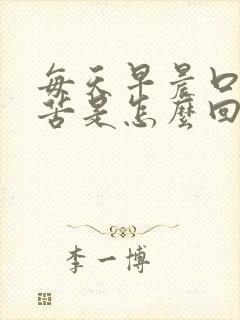 每天早晨口
苦是怎麼回
李一博